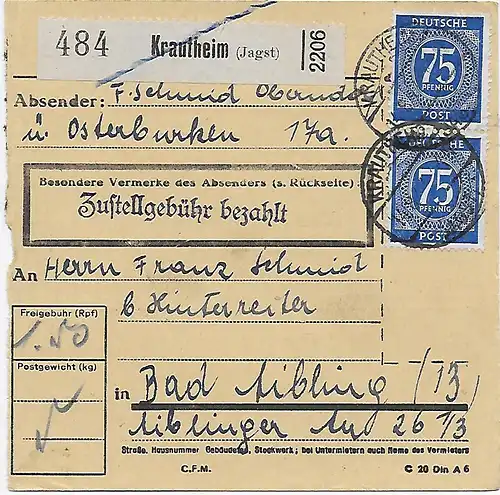 484 Krautheim (Jagst) 2206
DEUTSCHE
75
PFENNIG
POST
DEUTSCHE
75
PFENNIG
POST
Absender: F. Schmid
ü. Osterburken 17a.
Besondere Vermerke des Absenders (s. Rückseite)
Zustellgebühr bezahlt
An Herrn Franz Schmid
b Hinterreiter
Freigebuhr (Rpf)
1.50
Postgewicht (kg)
in Bad Aibling (13
Aiblinger Au 26 1/3
Straße, Hausnummer Gebäudeteil, Stockwerk; bei Untermietern auch Name des Vermieters
C.F.M.
C 20 Din A 6